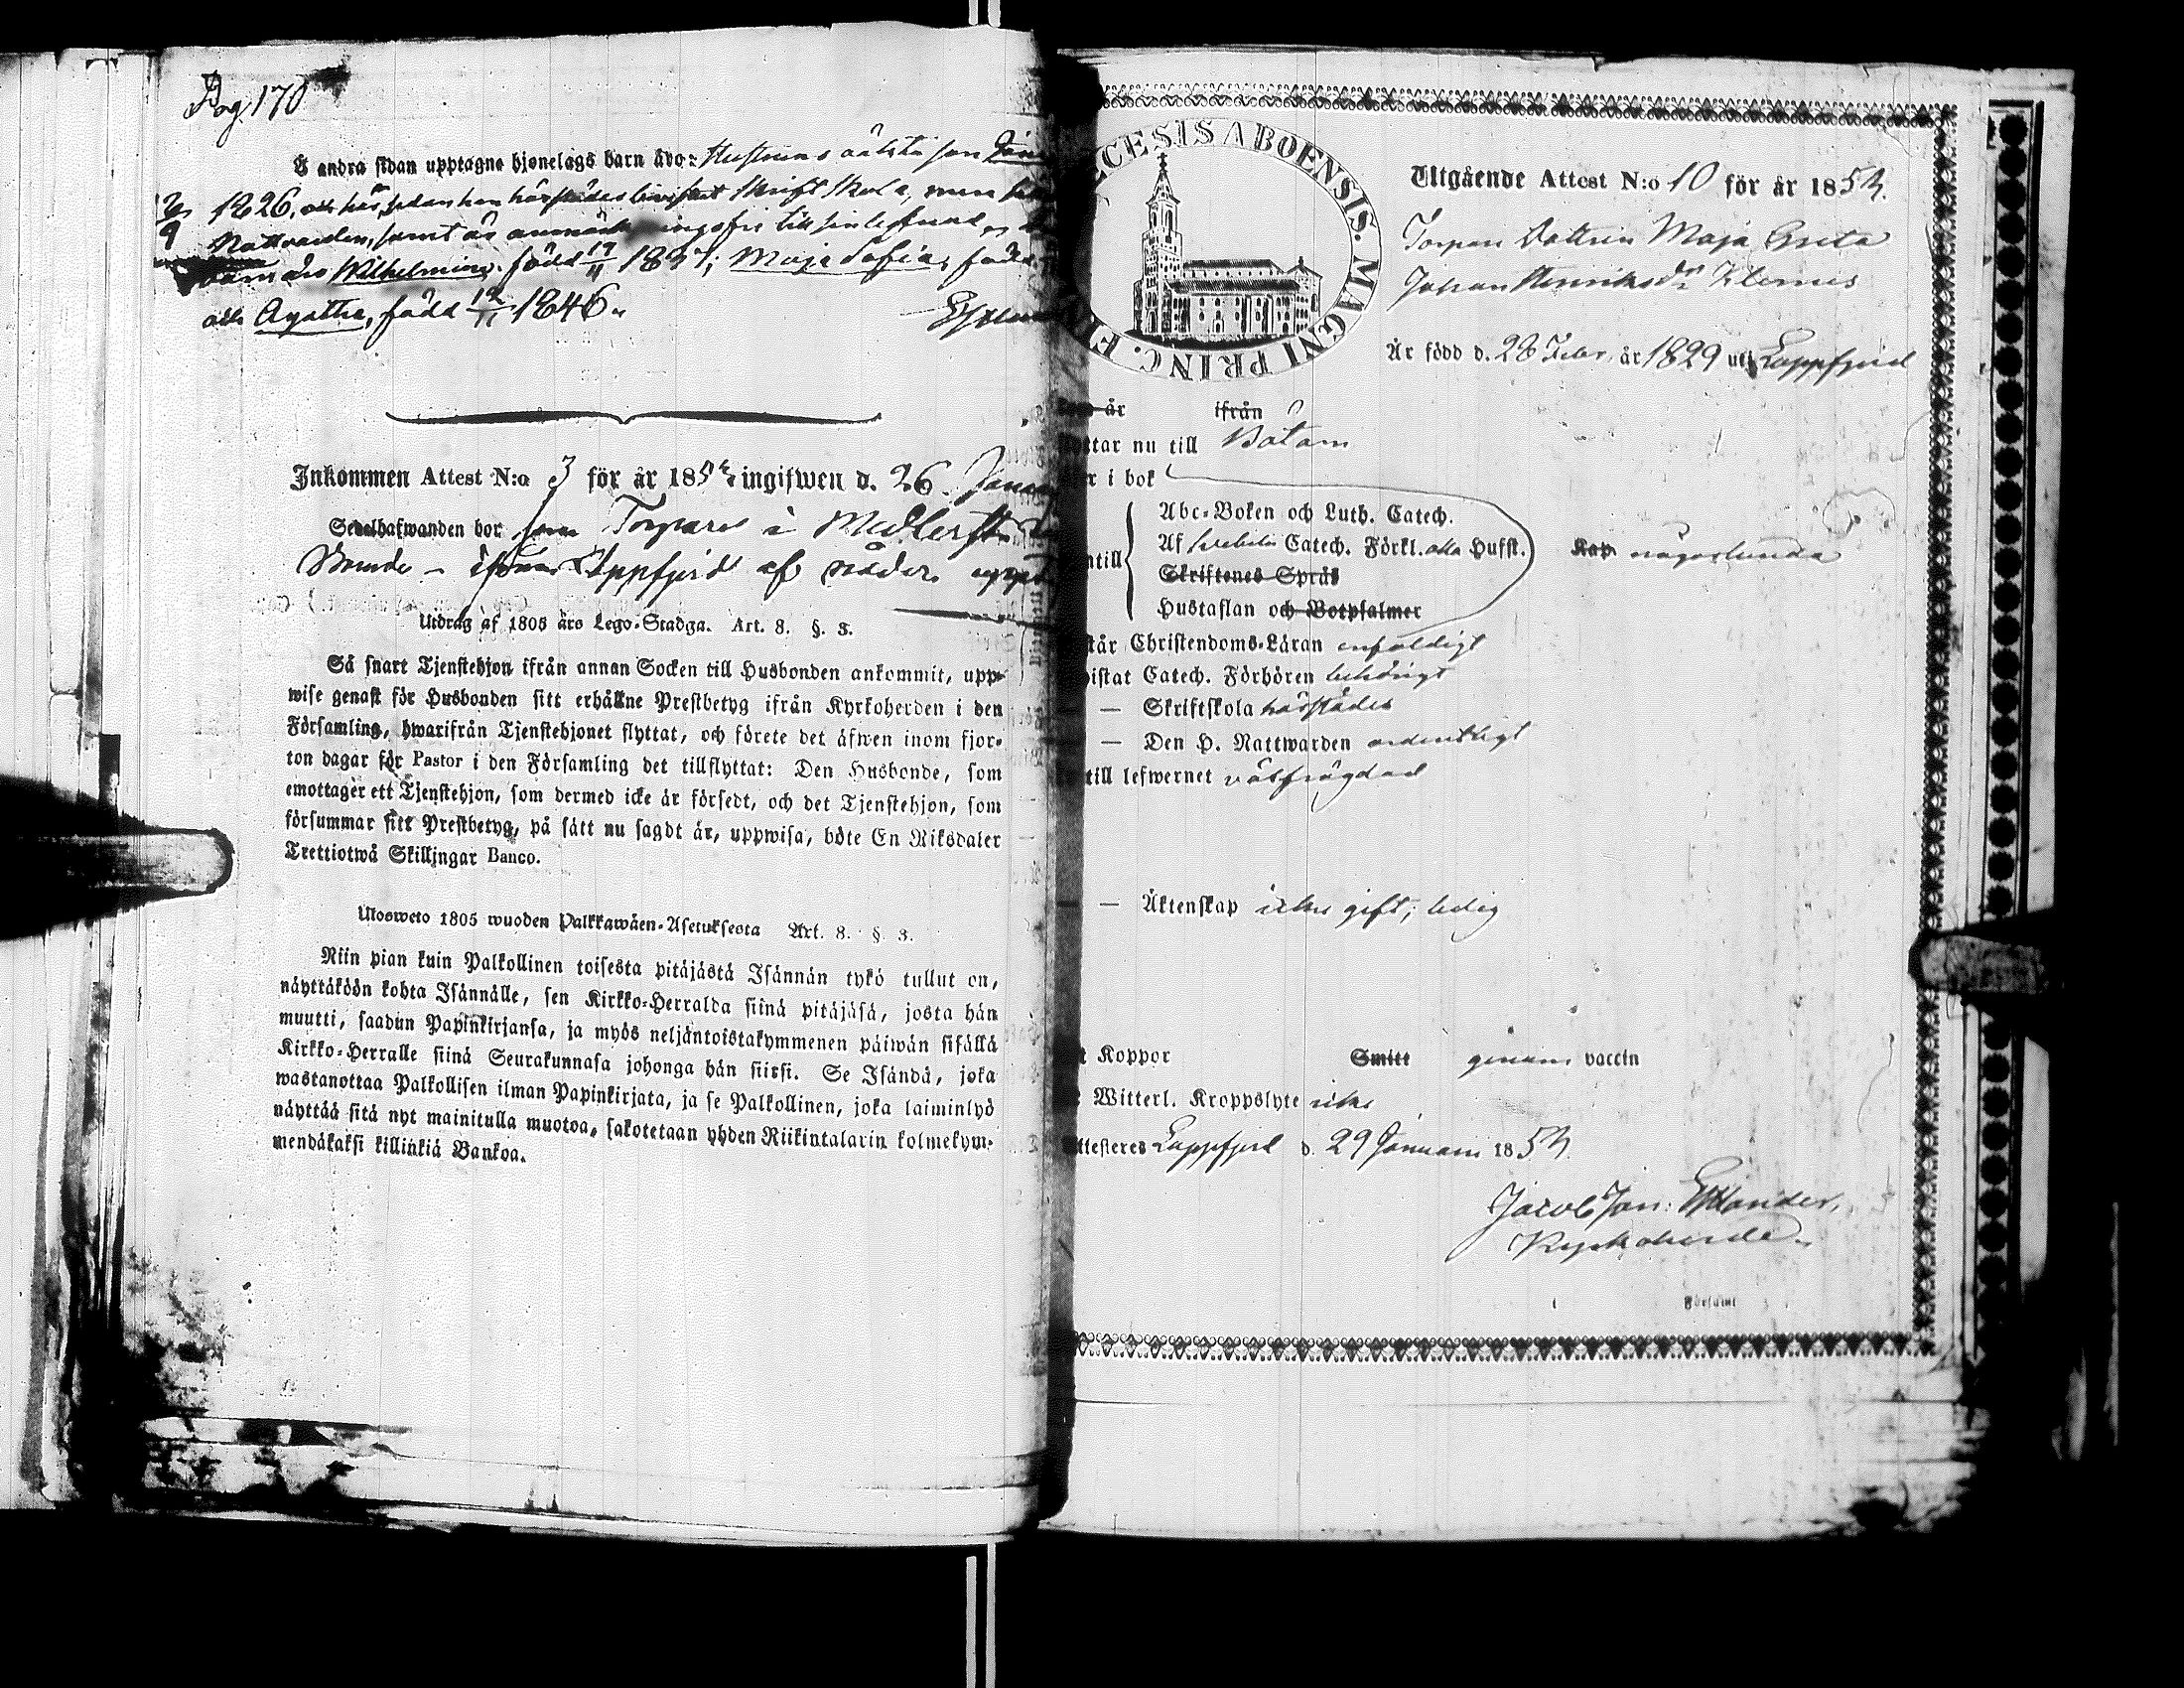 Pag. 170
å andra sidan upptagne hjonelags barn äro: Hustruns äldsta son
1826,
Nattvarden, samt är
Wilhelmina född 17/11 1837; Maja Sofia, född
och Agatha, född 12/11 1846.
Inkommen Attest N:o 3 för år 185 ingifwen d. 26 Janua
Sedelhafwanden bor som Torpare i
ifrån Lappfjerd af
Utdrag af 1805 års Lego-Stadga. Art. 8. §. 3.
Så snart Tjenstehjon ifrån annan Socken till Husbonden ankommit, upp-
wise genast för Husbonden sitt erhållne Prestbetyg ifrån Kyrkoherden i den
Församling, hwarifrån Tjenstehjonet flyttat, och förete det äfwen inom fjor-
ton dagar för Pastor i den Församling det tillflyttat: Den Husbonde, som
emottager ett Tjenstehjon, som dermed icke är försedt, och det Tjenstehjon, som
försummar sitt Prestbetyg, på sätt nu sagdt är, uppwisa, böte En Riksdaler
Trettiotwå Skillingar Banco.
Ulosweto 1805 wuoden Palkkawäen-Asetuksesta Art. 8. §. 3.
Niin pian kuin Palkollinen toisesta pitäjästä Isännän tykö tullut on,
näyttäköön kohta Isännälle, sen Kirkko-Herralda siinä pitäjäsä, josta hän
muutti, saadun Papinkirjansa, ja myös neljäntoistakymmenen päiwän sisällä
Kirkko-Herralle siinä Seurakunnasa johonga hän siirsi. Se Isändä, joka
wastanottaa Palkollisen ilman Papinkirjata, ja se Palkollinen, joka laiminlyö
näyttää sitä nyt mainitulla muotoa, sakotetaan yhden Riikintalarin kolmekym-
mendäkaksi killinkiä Bankoa.
CESIS ABOENSIS. MAGNI PRINC. F
Utgående Attest N:o 10 för år 185
Torpare Dottren Maja Greta
Johan Henriksdr Klemes
Är född d. 28 Febr. år 1829 uti Lappfjerd
är ifrån
ttar nu till Båtom
er i bok
Abc-Boken och Luth. Catech.
Af Svebelii Catech. Förkl. Husst.
ntill
Skriftenes Språk
Kap någorlunda
Hustaflan och Botpsalmer
står Christendoms-Läran enfaldigt
istat Catech. Förhören behörigt
— Skriftskola härstädes
— Den H. Nattwarden ordentligt
till lefwernet välfrägdad
— Äktenskap icke gift, ledig
t Koppor Smitt genom vaccin
Witterl. Kroppslyte icke
ttesteres Lappfjerd d. 29 Januari 185
Jacob Joh: Estlander,
Kyrkoherde.
Församl